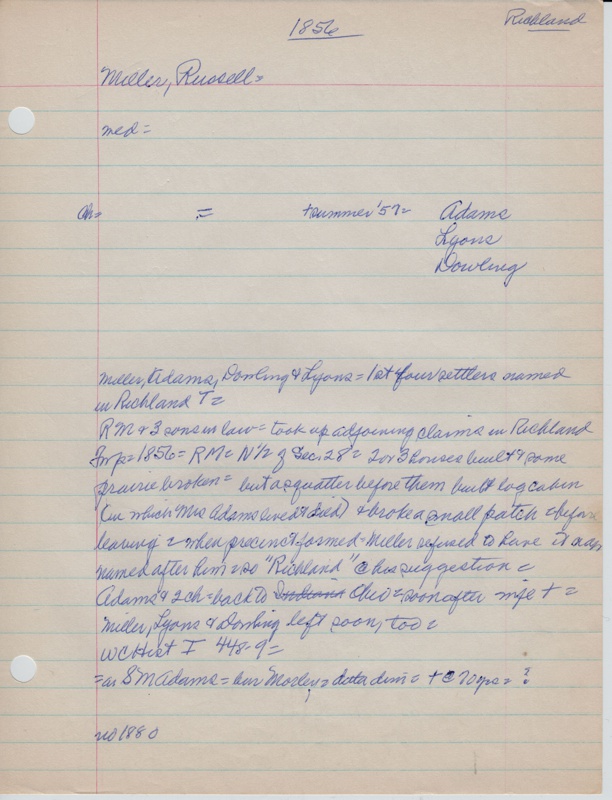 Richland
1856
Miller, Russell =
med =
Ch = = + summer '57 = Adams
Lyons
Dowling
Miller, Adams, Dowling & Lyons = 1st four settlers named
in Richland T =
RM & 3 sons in law = took up adjoining claims in Richland
Twp = 1856 = RM = N 1/2 of Sec. 28 = 2 or 3 houses built & some
prairie broken = but a squatter before them built log cabin
(in which Mrs Adams lived & died) & broke a small patch before
leaving = when precinct formed = Miller refused to have it
named after him = so "Richland" @ his suggestion =
Adams & 2 ch = back to Indiana Ohio = soon after wife + =
Miller, Lyons & Dowling left soon, too =
WC Hist I 448-9 =
= S M Adams = = + @ 70 yrs = ?
no 1880